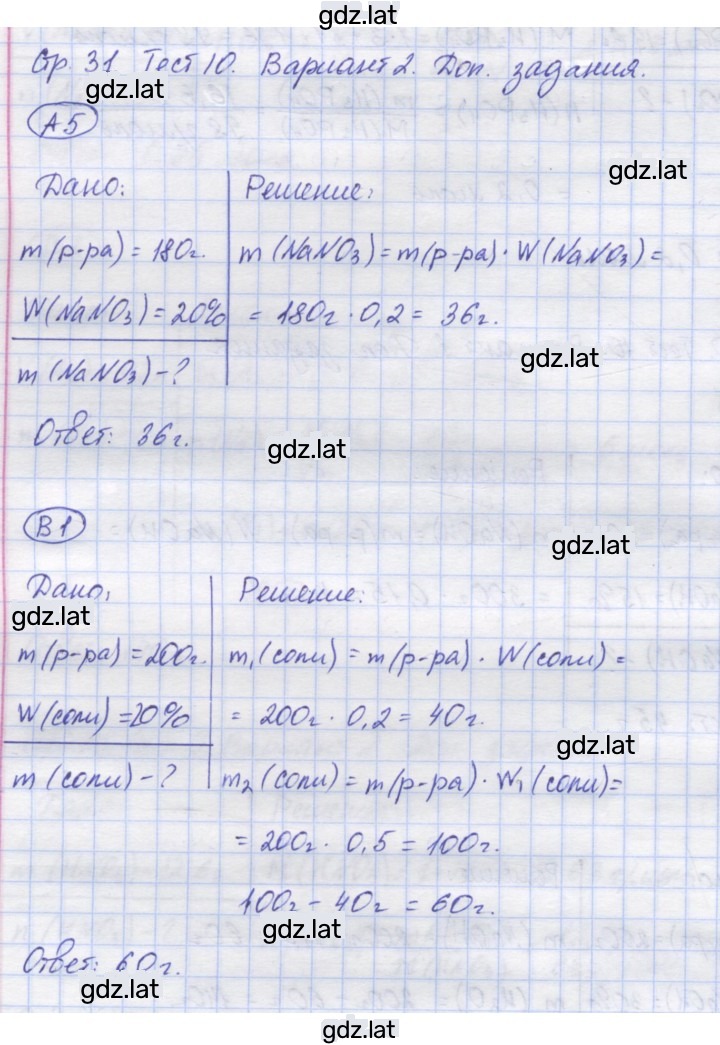 gdz.lat
Стр. 31 Тест 10. Вариант 2. Доп. задания.
gdz.lat
А5
gdz.lat
Дано:
Решение:
m (р-ра) = 180г.
m (NaNO₃) = m(р-ра) · W(NaNO₃) =
W(NaNO₃) = 20%
= 180г · 0,2 = 36г.
gdz.lat
m (NaNO₃) - ?
Ответ: 36г.
gdz.lat
В1
gdz.lat
Дано:
Решение:
gdz.lat
m (р-ра) = 200г.
m₁(соли) = m(р-ра) · W(соли) =
W(соли) = 20%
= 200г · 0,2 = 40г.
gdz.lat
m (соли) - ?
m₂ (соли) = m(р-ра) · W₁ (соли) =
= 200г · 0,5 = 100г.
100г - 40г = 60г.
gdz.lat
Ответ: 60г.
gdz.lat
gdz.lat